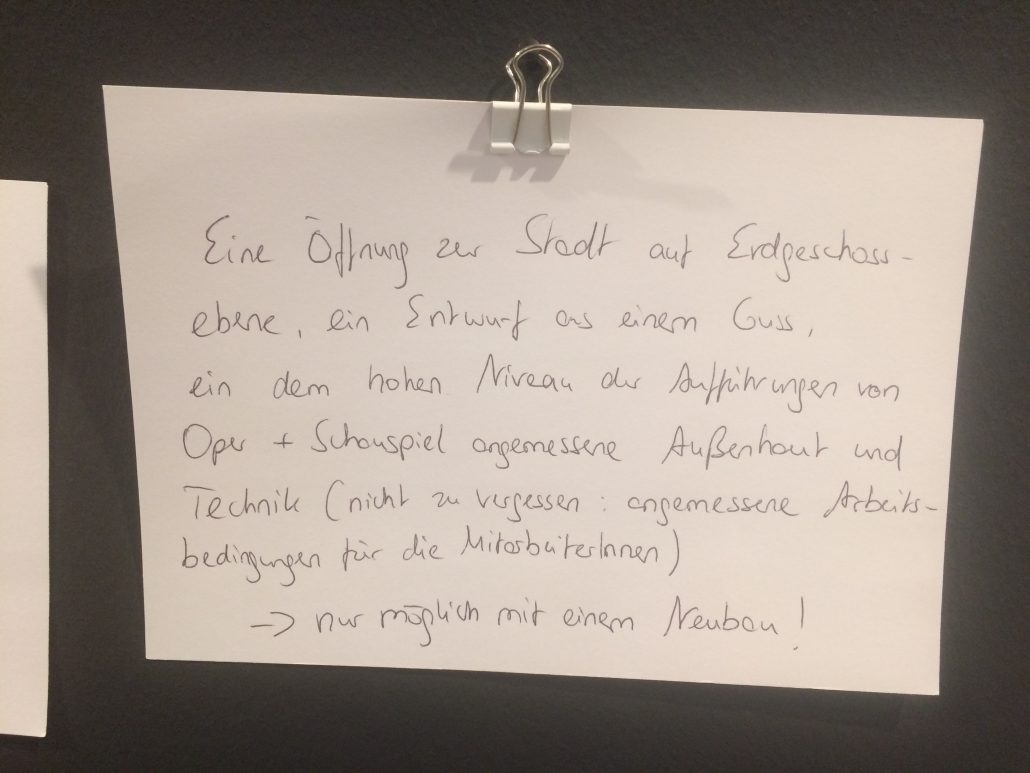 Eine Öffnung zur Stadt auf Erdgeschoss-
ebene, ein Entwurf aus einem Guss,
ein dem hohen Niveau der Aufführungen von
Oper + Schauspiel angemessene Außenhaut und
Technik (nicht zu vergessen: angemessene Arbeits-
bedingungen für die MitarbeiterInnen)
→ nur möglich mit einem Neubau!